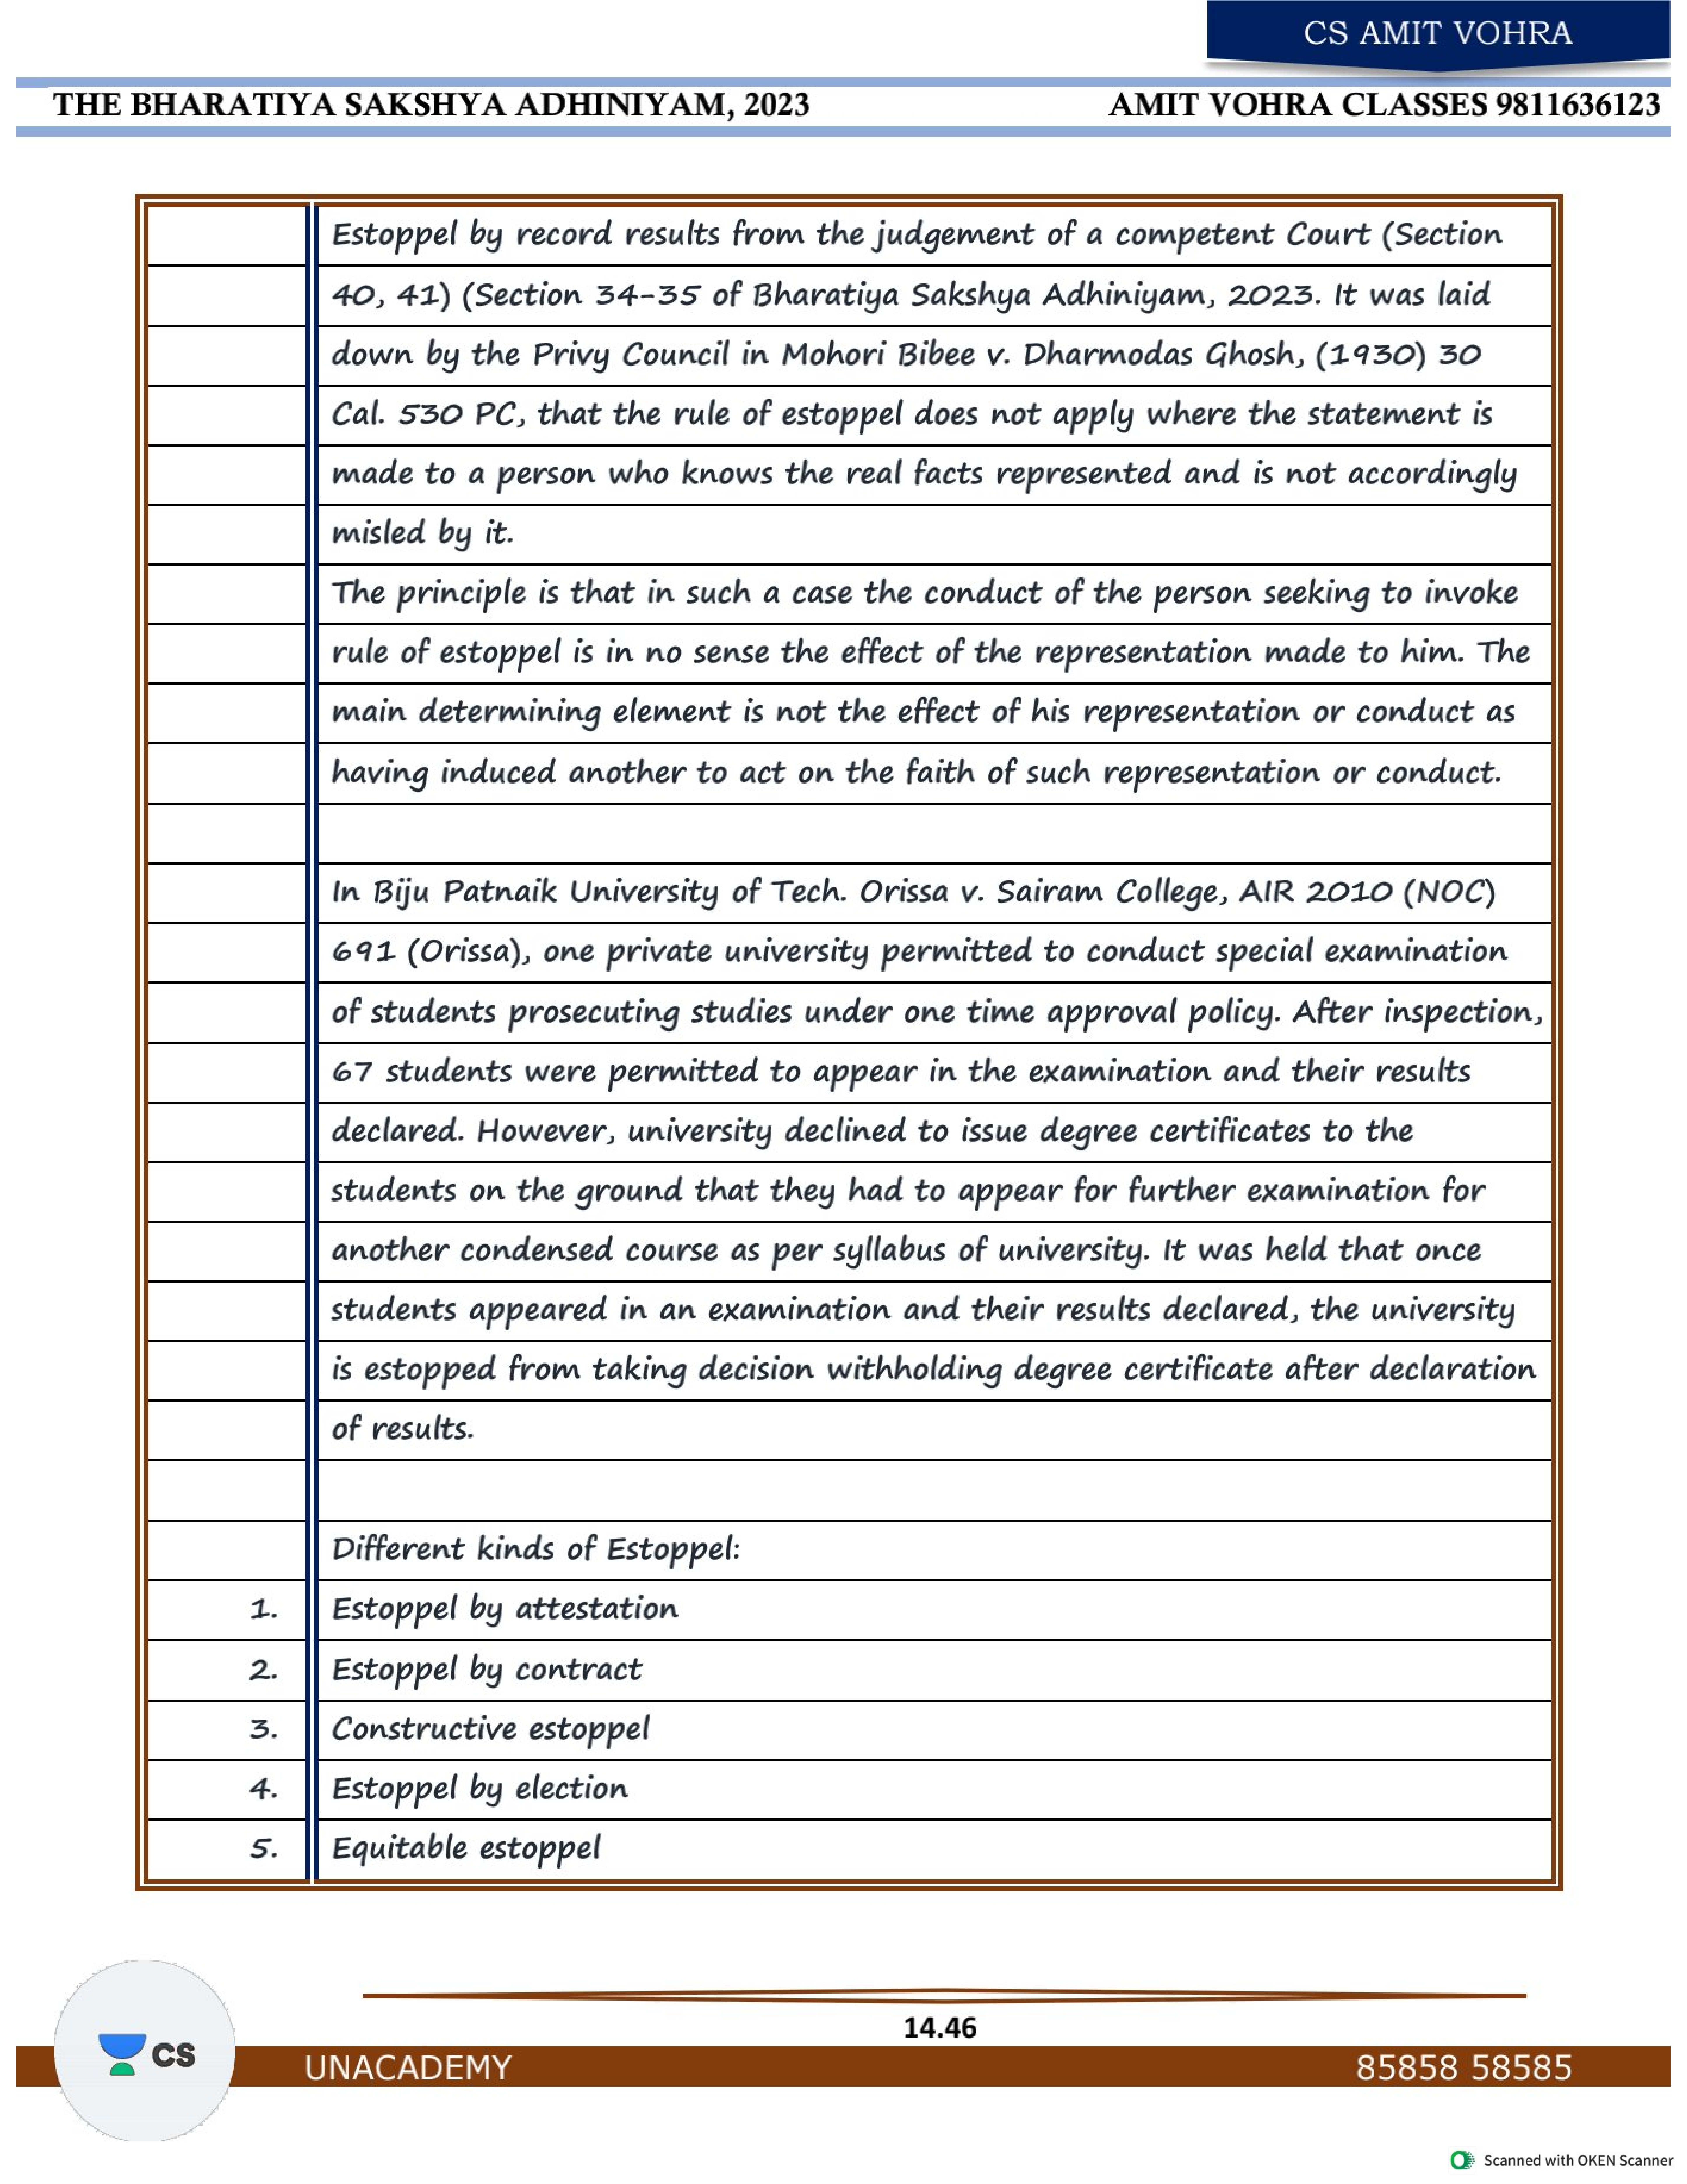 CS AMIT VOHRA
THE BHARATIYA SAKSHYA ADHINIYAM, 2023 AMIT VOHRA CLASSES 9811636123
Estoppel by record results from the judgement of a competent Court (Section
40, 41) (Section 34-35 of Bharatiya Sakshya Adhiniyam, 2023. It was laid
down by the Privy Council in Mohori Bibee v. Dharmodas Ghosh, (1930) 30
Cal. 530 PC, that the rule of estoppel does not apply where the statement is
made to a person who knows the real facts represented and is not accordingly
misled by it.
The principle is that in such a case the conduct of the person seeking to invoke
rule of estoppel is in no sense the effect of the representation made to him. The
main determining element is not the effect of his representation or conduct as
having induced another to act on the faith of such representation or conduct.
In Biju Patnaik University of Tech. Orissa v. Sairam College, AIR 2010 (NOC)
691 (Orissa), one private university permitted to conduct special examination
of students prosecuting studies under one time approval policy. After inspection,
67 students were permitted to appear in the examination and their results
declared. However, university declined to issue degree certificates to the
students on the ground that they had to appear for further examination for
another condensed course as per syllabus of university. It was held that once
students appeared in an examination and their results declared, the university
is estopped from taking decision withholding degree certificate after declaration
of results.
Different kinds of Estoppel:
1. Estoppel by attestation
2. Estoppel by contract
3. Constructive estoppel
4. Estoppel by election
5. Equitable estoppel
14.46
CS
UNACADEMY 85858 58585
Scanned with OKEN Scanner